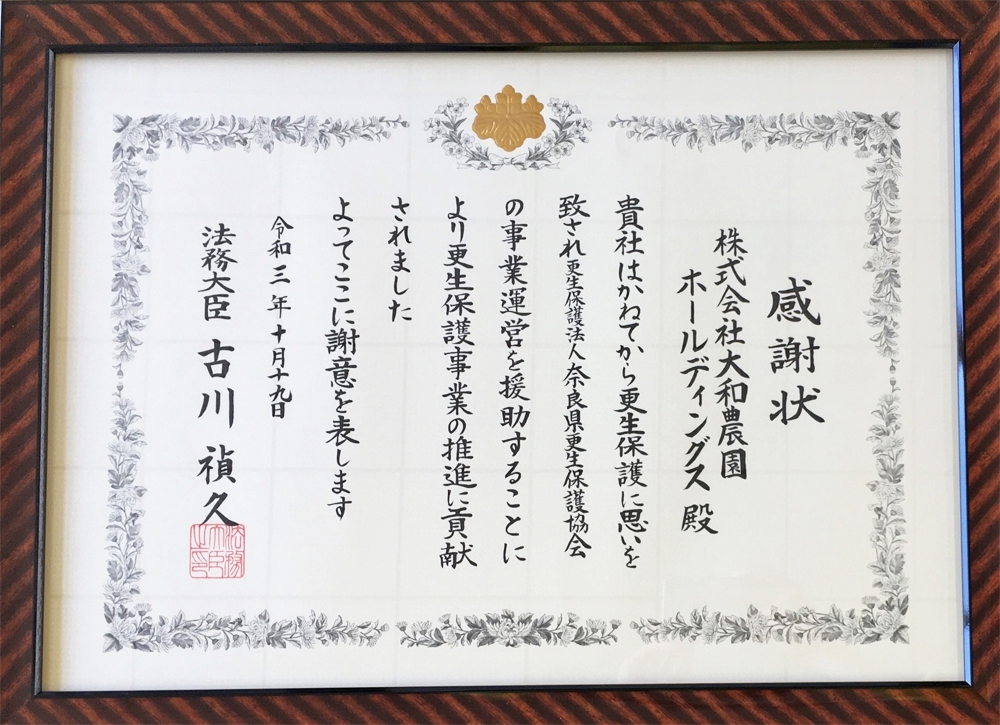 感謝状
株式会社大和農園
ホールディングス 殿
貴社はかねてから更生保護に思いを
致され更生保護法人奈良県更生保護協会
の事業運営を援助することに
より更生保護事業の推進に貢献
されました
よってここに謝意を表します
令和三年十月十九日
法務大臣 古川 禎久
法務大臣之印